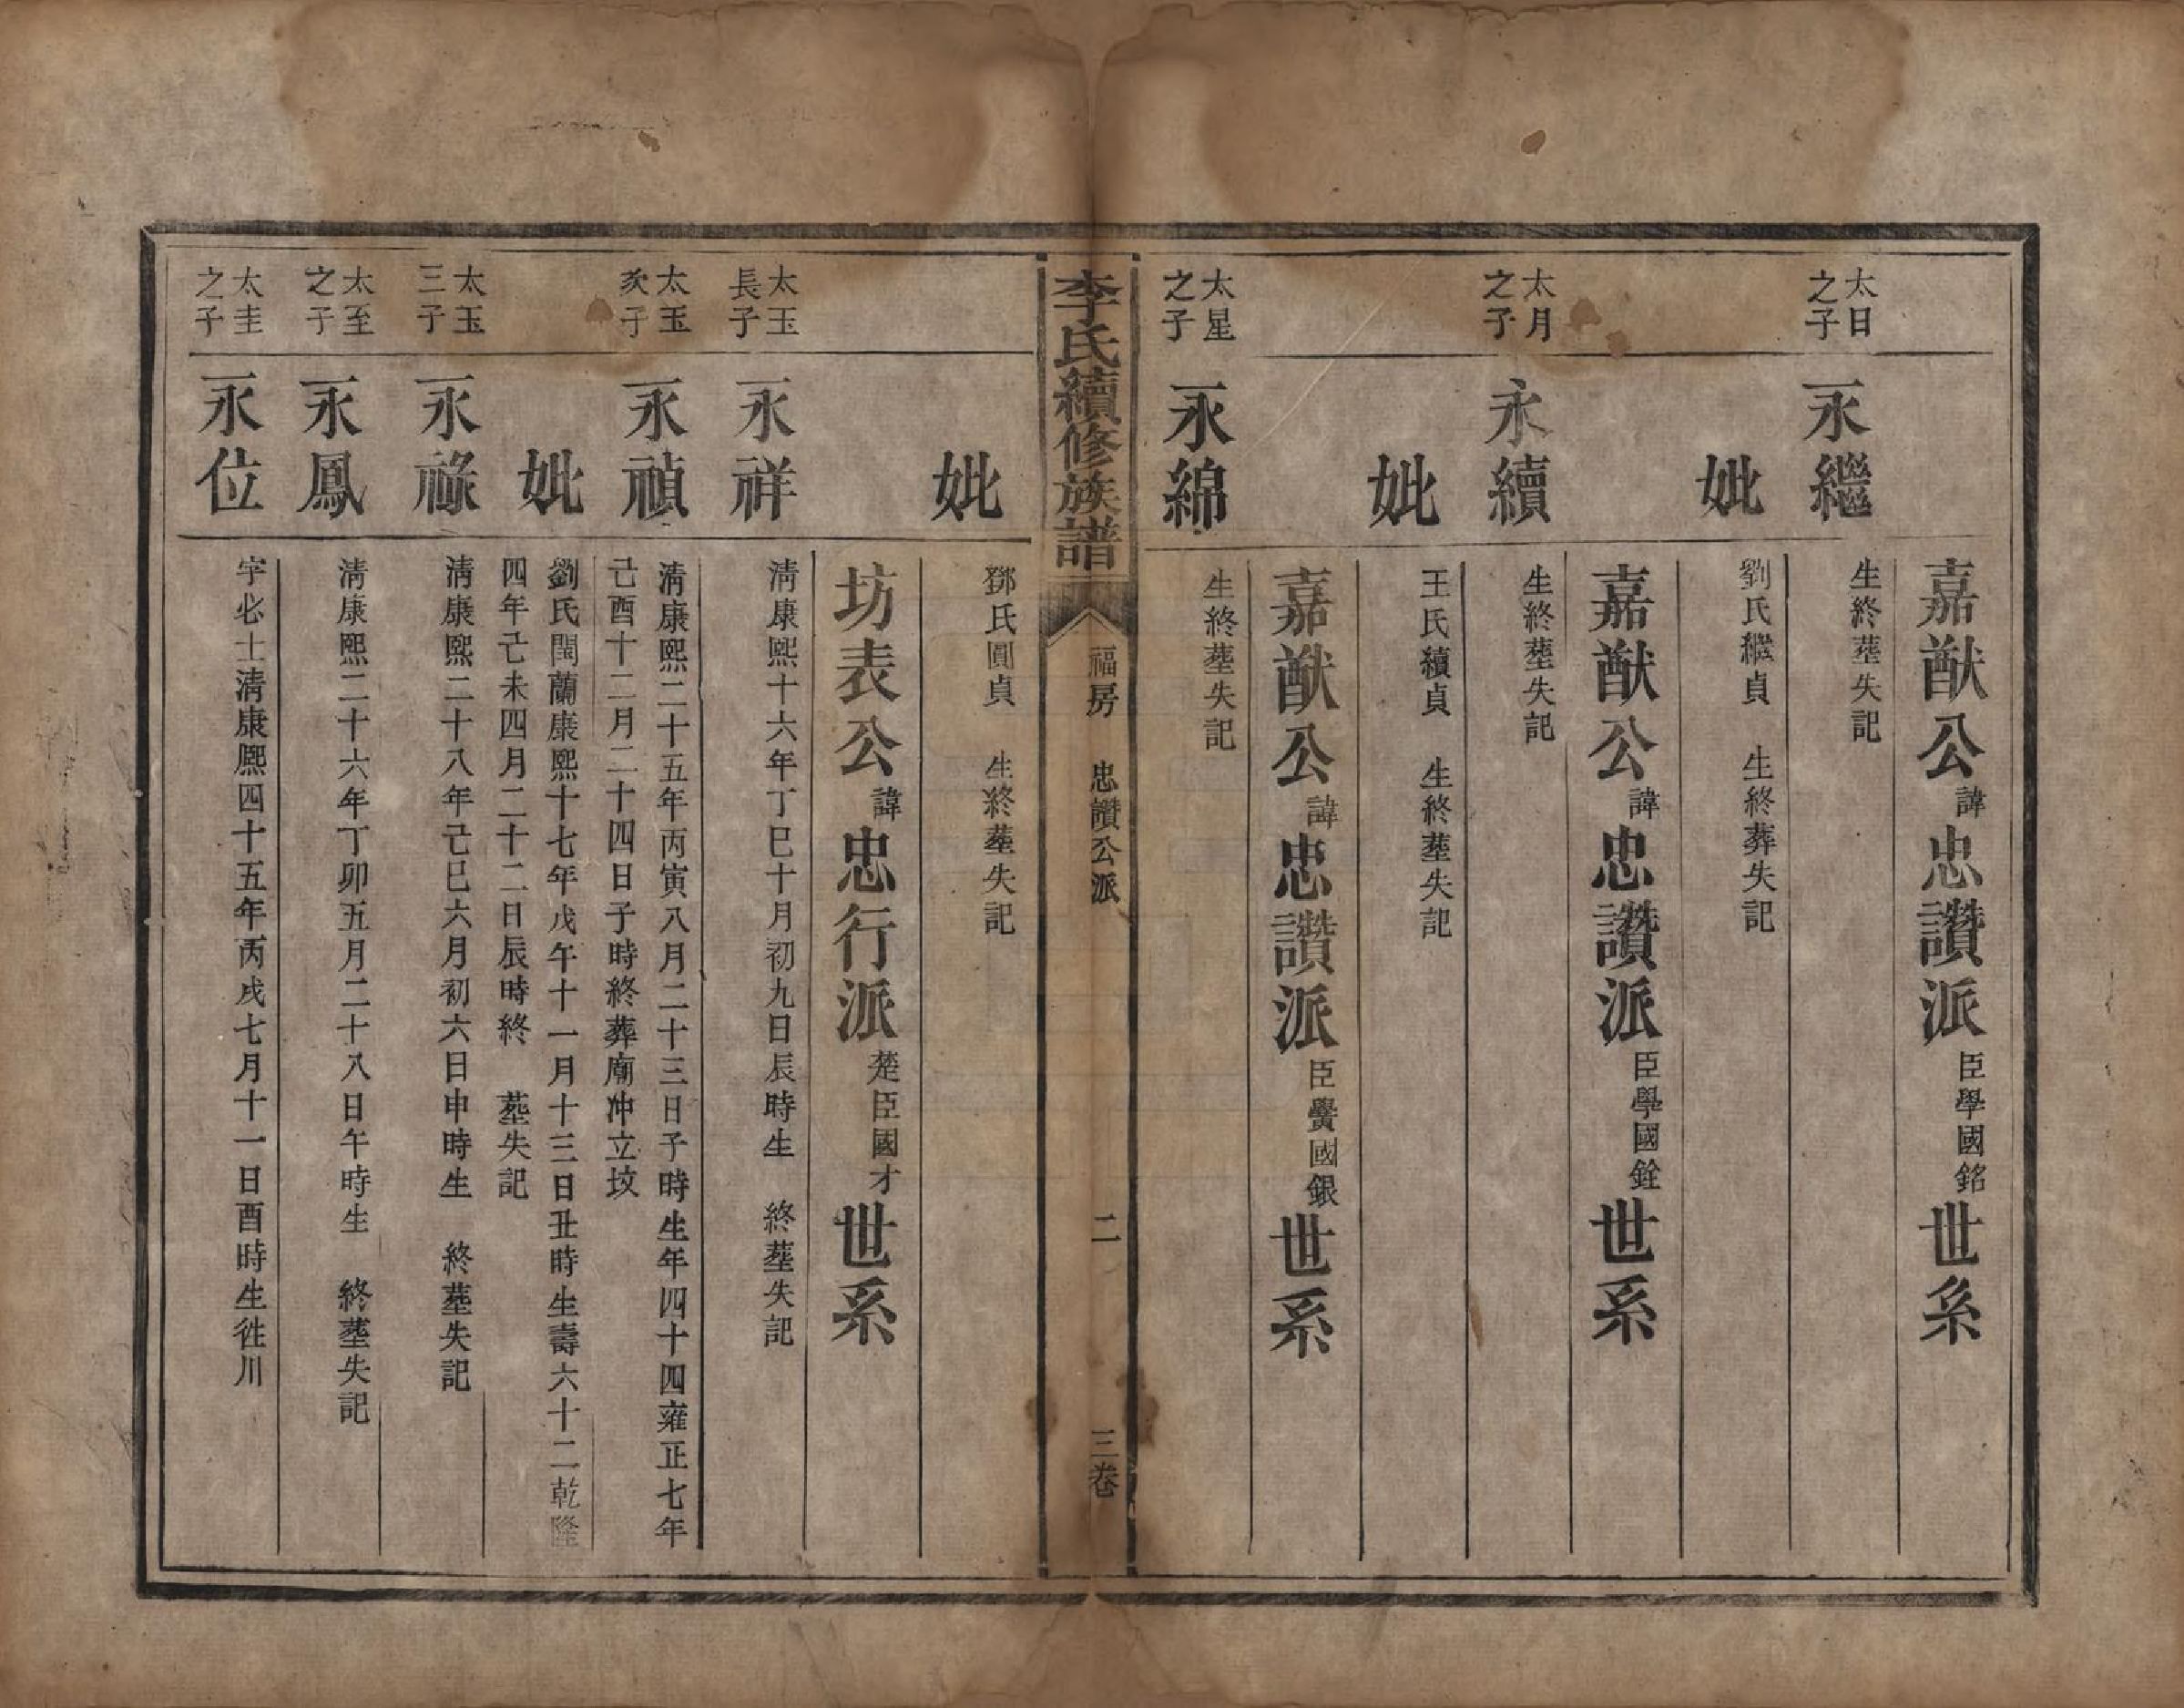 嘉猷公諱忠讚派臣學國銘世系
太日之子
永繼
生終塟失記
妣
劉氏繼貞 生終葬失記
嘉猷公諱忠讚派臣學國銓世系
太月之子
永續
生終塟失記
妣
王氏續貞 生終塟失記
嘉猷公諱忠讚派臣黌國銀世系
太星之子
永綿
生終塟失記
李氏續修族譜
福房 忠讚公派
二
三卷
妣
鄧氏圓貞 生終塟失記
坊表公諱忠行派楚臣國才世系
太玉長子
永祥
淸康熙十六年丁巳十月初九日辰時生 終塟失記
太玉次子
永禎
淸康熙二十五年丙寅八月二十三日子時生年四十四雍正七年
己酉十二月二十四日子時終葬廟冲立坟
妣
劉氏閨蘭康熙十七年戊午十一月十三日丑時生壽六十二乾隆
四年己未四月二十二日辰時終 塟失記
太玉三子
永祿
淸康熙二十八年己巳六月初六日申時生 終塟失記
太至之子
永鳳
淸康熙二十六年丁卯五月二十八日午時生 終塟失記
太圭之子
永位
字必士淸康熙四十五年丙戌七月十一日酉時生徃川